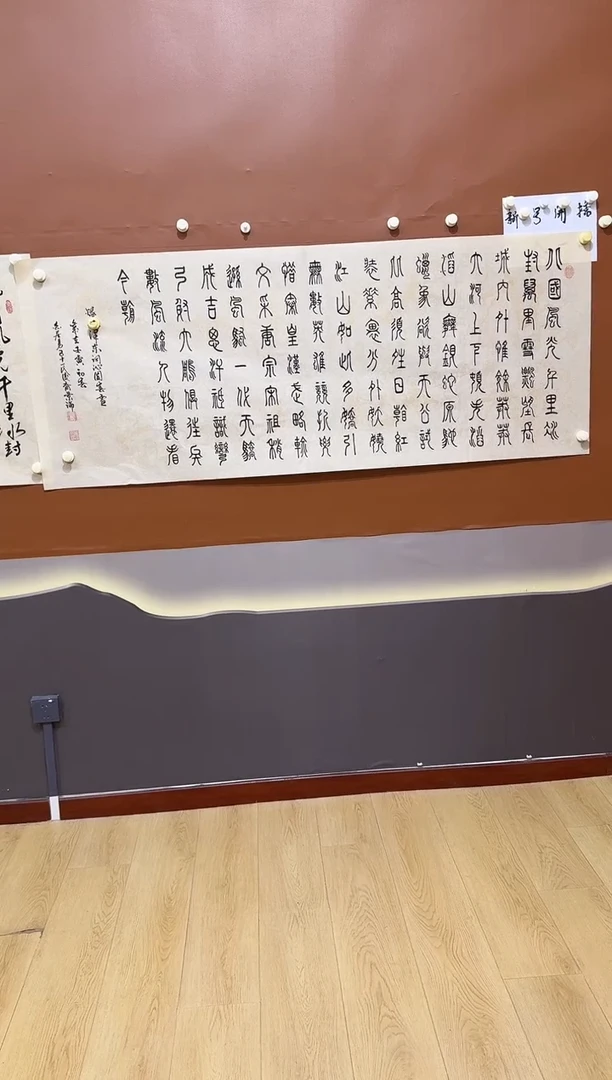 北國風光千里冰
封萬里雪飄望長
城內外惟餘莽莽
大河上下頓失滔
滔山舞銀蛇原馳
蠟象欲與天公試
比高須日看紅
裝素裹分外妖嬈
江山如此多嬌引
無數英雄競折腰
惜秦皇漢武略輸
文采唐宗宋祖稍
遜風騷一代天驕
成吉思汗祗識彎
弓射大鵰俱往矣
數風流人物還看
今朝
澤東詞沁園春雪
風光千里冰封